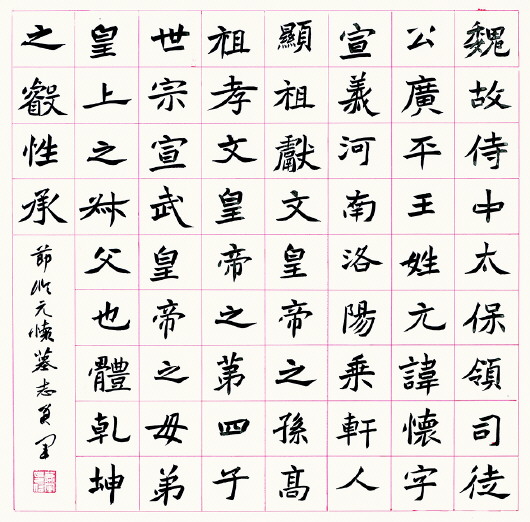 魏故侍中太保領司徒
公廣平王姓元諱懷字
宣義河南洛陽乘軒人
顯祖獻文皇帝之孫高
祖孝文皇帝之第四子
世宗宣武皇帝之母弟
皇上之叔父也體乾坤
之叡性承
節臨元懷墓志